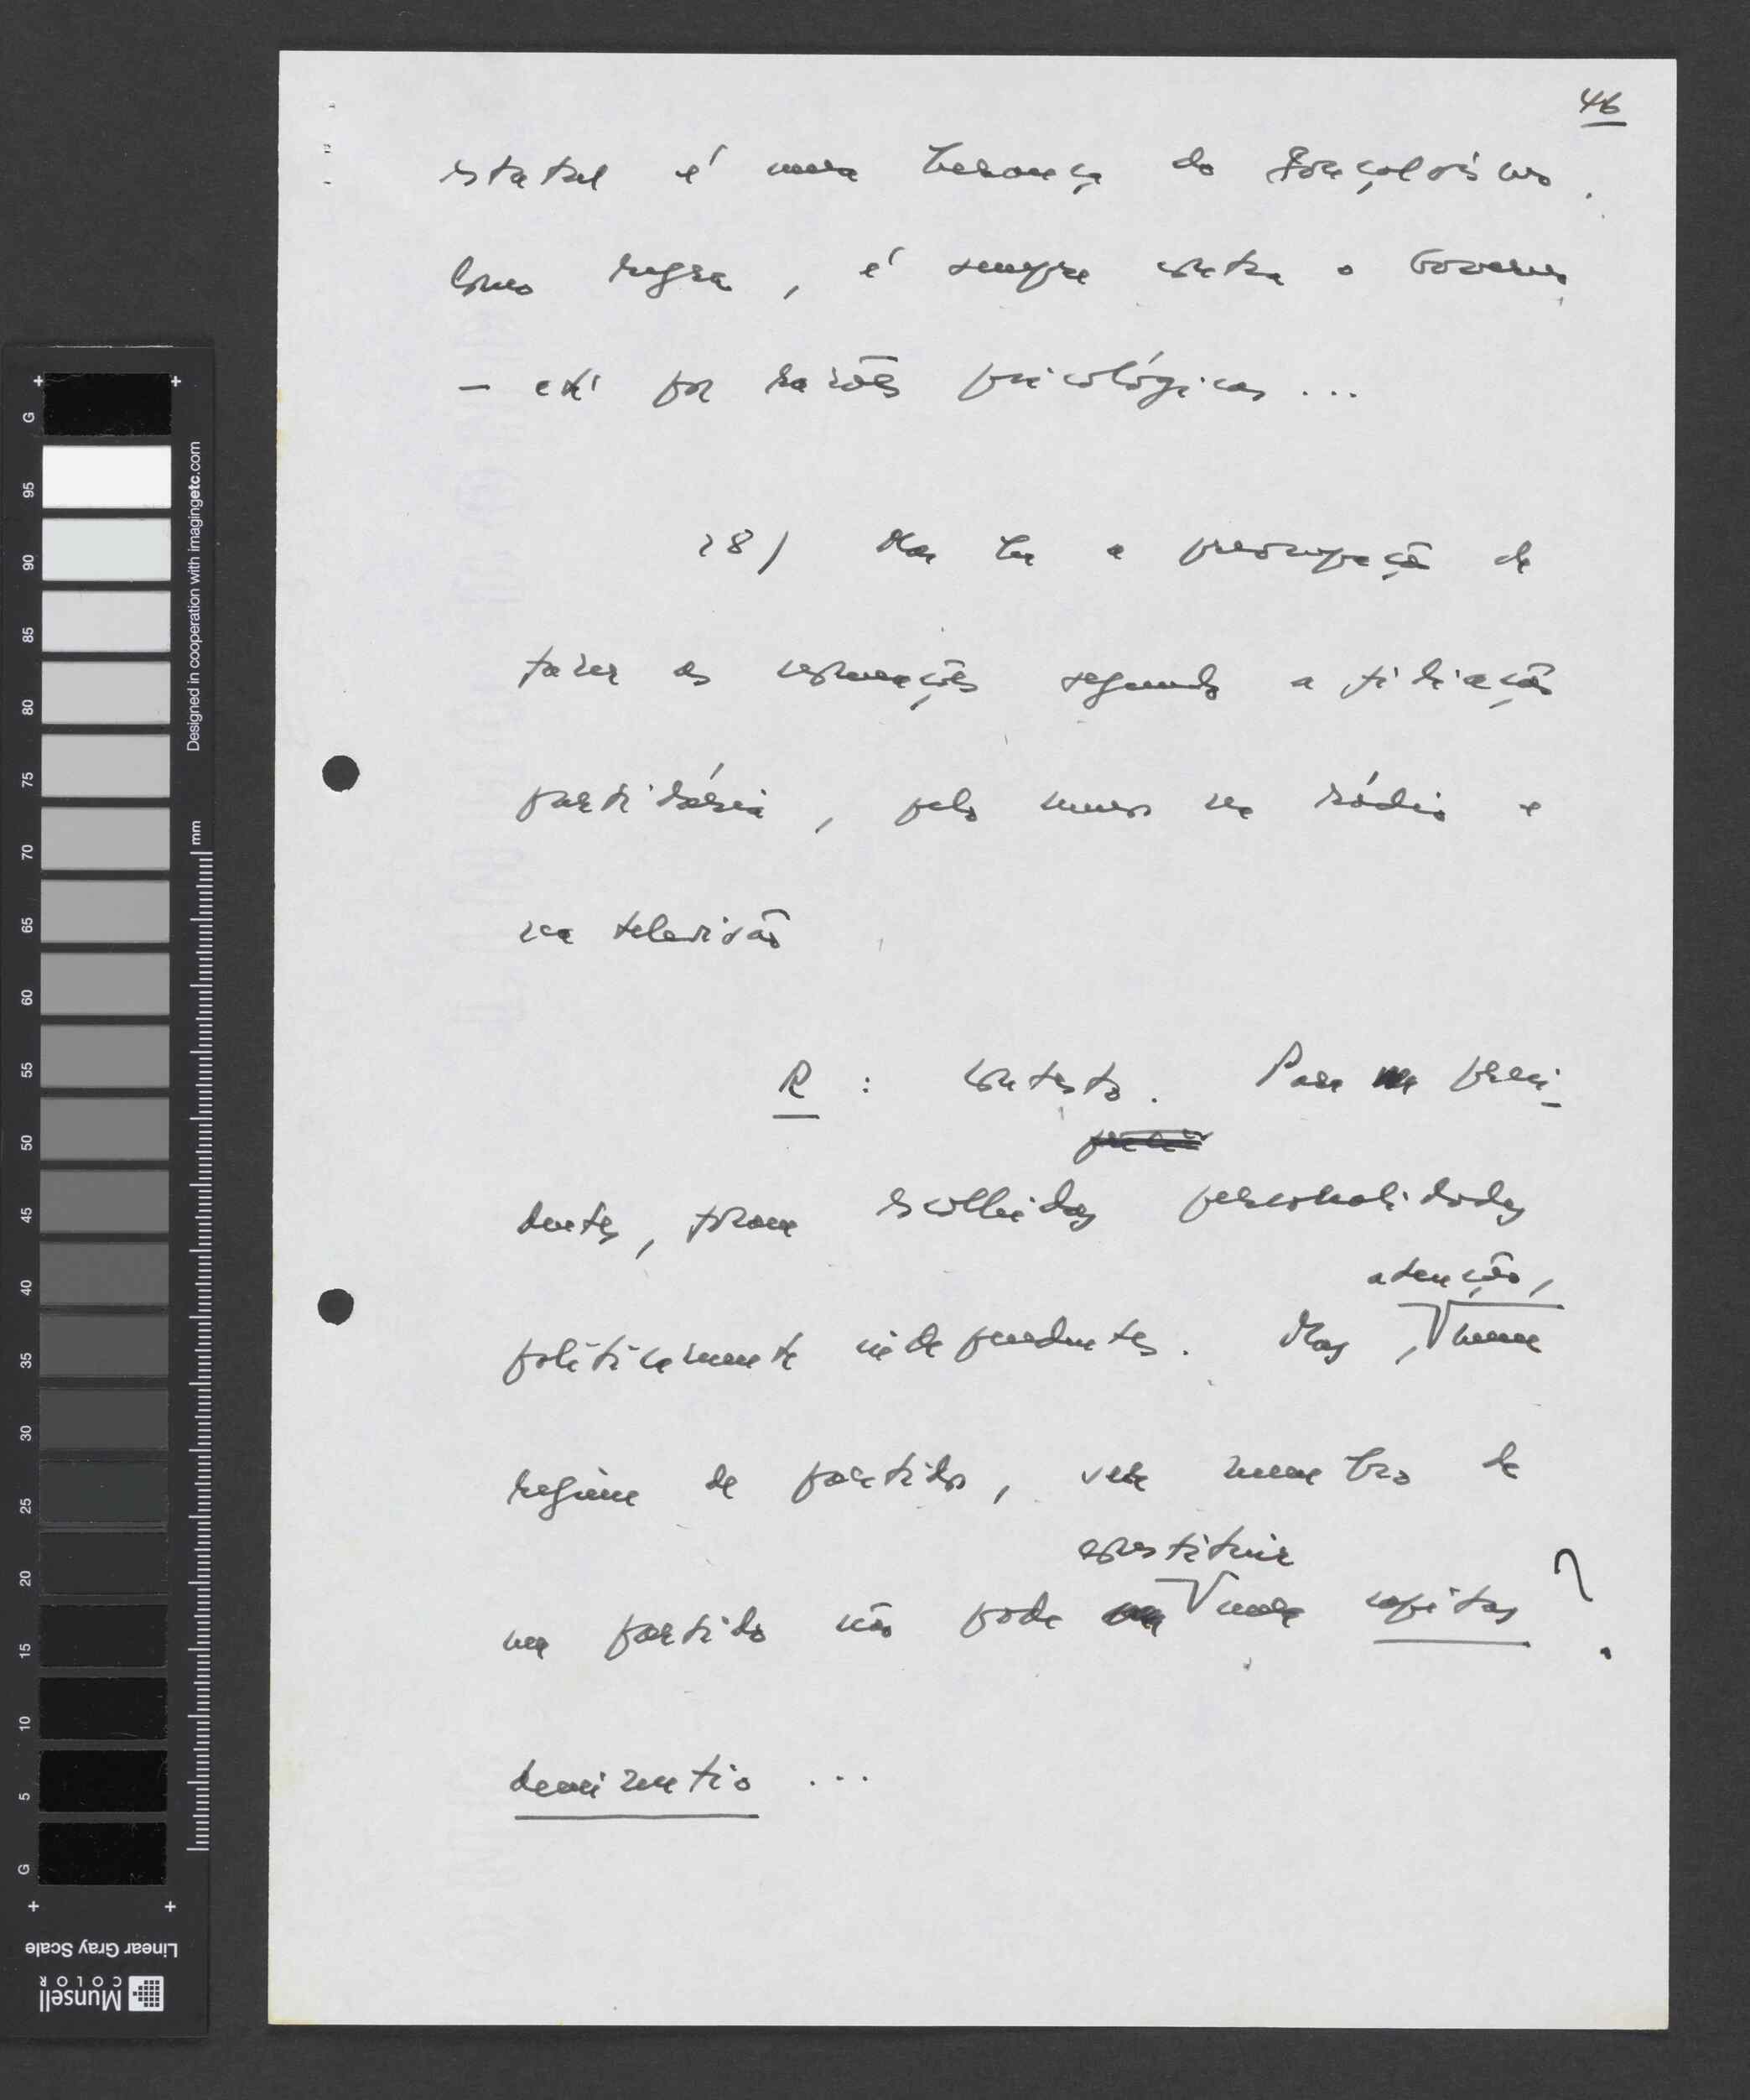 46
estatal é uma herança do gonçalvismo.
Como regra, é sempre contra o Governo,
– até por razões psicológicas ...
28) Mas há a preocupação de
fazer as nomeações segundo a filiação
partidária, pelo menos na rádio e
na televisão
R : Contesto. Para presi-
dentes, foram escolhidas personalidades
atenção,
politicamente independentes. Mas, num
regime de partidos, ser membro de
constituir
um partido não pode uma capitis ?
deminutio ...
G
95
90
85
80
75
70
65
60
55
50
45
40
35
30
25
20
15
10
5
G
Designed in cooperation with imagingetc.com
mm
Linear Gray Scale
Munsell
COLOR